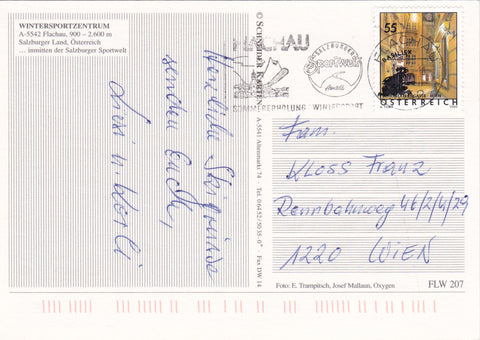 WINTERSPORTZENTRUM
A-5542 Flachau, 900 – 2.600 m
Salzburger Land, Österreich
... inmitten der Salzburger Sportwelt
Herzliche Skigrüsse
senden Euch,
Lissi u. Karli
© SCHNEIDER KARTEN
A-5541 Altenmarkt 74 Tel. 06452/5038-0* Fax DW 14
FLACHAU
SOMMERERHOLUNG WINTERSPORT
SALZBURGER
Sportwelt
55
BASILISK
ÖSTERREICH
Fam.
KLOSS Franz
Rennbahnweg 46/2/4/29
1220 WIEN
Foto: E. Trampitsch, Josef Mallaun, Oxygen
FLW 207